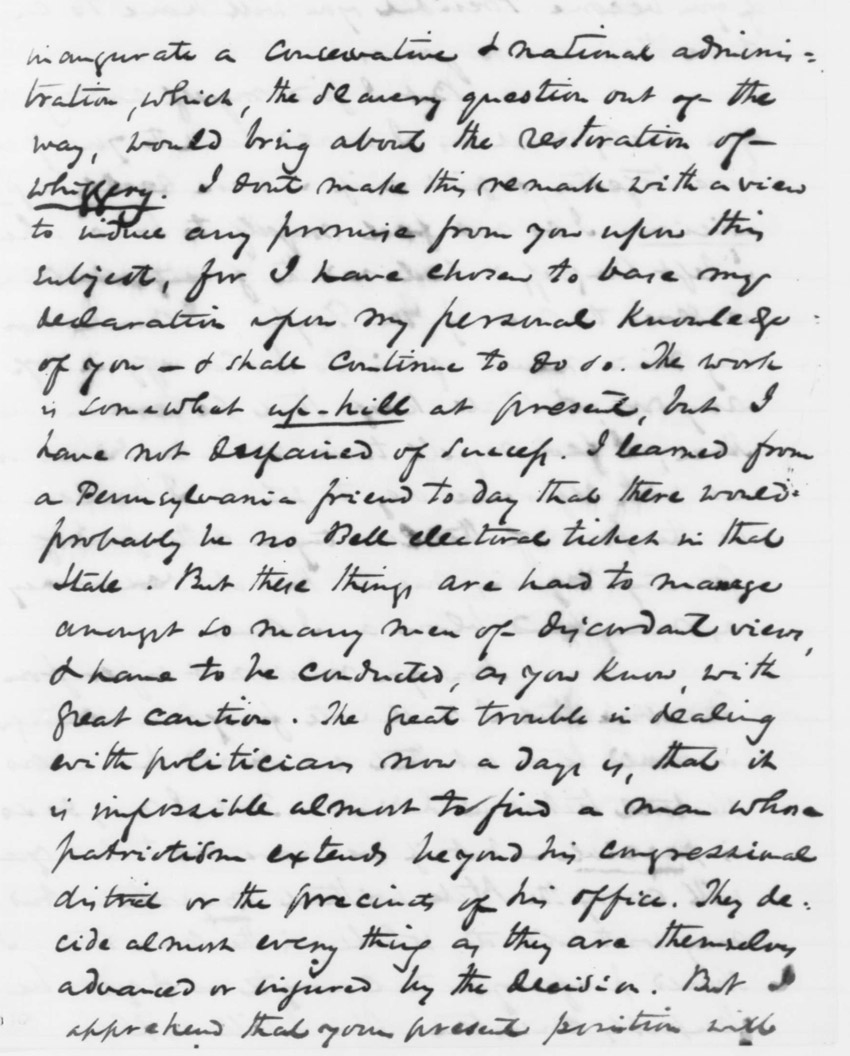 inaugurate a conservative & national adminis=
tration, which, the slavery question out of the
way, would bring about the restoration of
whiggery. I dont make this remark with a view
to induce any promise from you upon this
subject, for I have chosen to base my
declaration upon my personal knowledge
of you — & shall continue to do so. The work
is somewhat up-hill at present, but I
have not despaired of success. I learned from
a Pennsylvania friend to day that there would
probably be no Bell electoral ticket in that
State. But these things are hard to manage
amongst so many men of discordant views,
& have to be conducted, as you know, with
great caution. The great trouble in dealing
with politicians now a days is, that it
is impossible almost to find a man whose
patriotism extends beyond his congressional
district or the precincts of his office. They de=
cide almost every thing as they are themselves
advanced or injured by the decision. But I
apprehend that your present position will